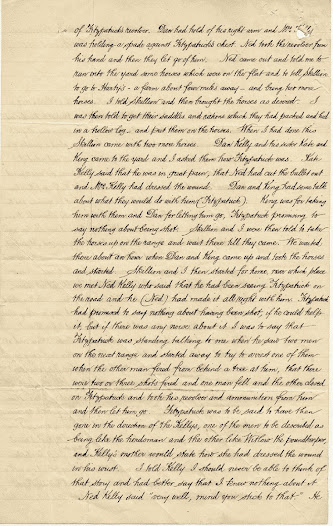 of Fitzpatrick's revolver. Dan had hold of his right arm and Mrs Kelly
was holding a spade against Fitzpatrick's chest. Ned took the revolver from
his hand and then they let go of him. Ned came out and told me to
run into the yard some horses which were on the flat and to tell Skillion
to go to Hearty's - a farm about four miles away - and bring two more
horses. I told Skillion and then brought the horses as desired. I
was then told to get their saddles and rations which they had packed and hid
in a hollow log - and put them on the horses. When I had done this
Skillion came with two more horses. Dan Kelly and his sister Kate and
King came to the yard and I asked them how Fitzpatrick was. Kate
Kelly said that he was in great pain, that Ned had cut the bullet out
and Mrs. Kelly had dressed the wound. Dan and King had some talk
about what they would do with him (Fitzpatrick). King was for taking
him with them and Dan for letting him go, Fitzpatrick promising to
say nothing about being shot. Skillion and I were then told to take
the horses up on the range and wait there till they came. We waited
there about an hour when Dan and King came up and took the horses
and started. Skillion and I then started for home, near which place
we met Ned Kelly who said that he had been seeing Fitzpatrick on
the road and he (Ned) had made it all right with him. Fitzpatrick
had promised to say nothing about having been shot, if he could help
it, but if there was any news about it I was to say that
Fitzpatrick was standing talking to me when he saw two men
on the next range and started away to try to arrest one of them
when the other man fired from behind a tree at him, that there
were two or three shots fired and one man fell and the other closed
on Fitzpatrick and took his revolver and ammunition from him
and then let him go. Fitzpatrick was to be said to have then
gone in the direction of the Kellys, one of the men to be described as
being like the herdsman and the other like Willow the poundkeeper,
and Kelly's mother would state how she had dressed the wound
in his wrist. I told Kelly I should never be able to think of
that story and had better say that I knew nothing about it
Ned Kelly said "very well, mind you stick to that."